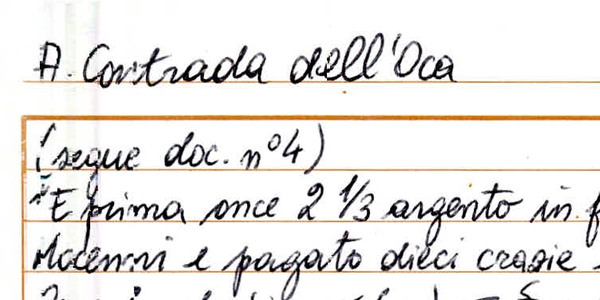 A. Contrada dell'Oca
(segue doc. n°4)
"E prima once 2 1/3 argento in f
Mocenni e pagato dieci crazie